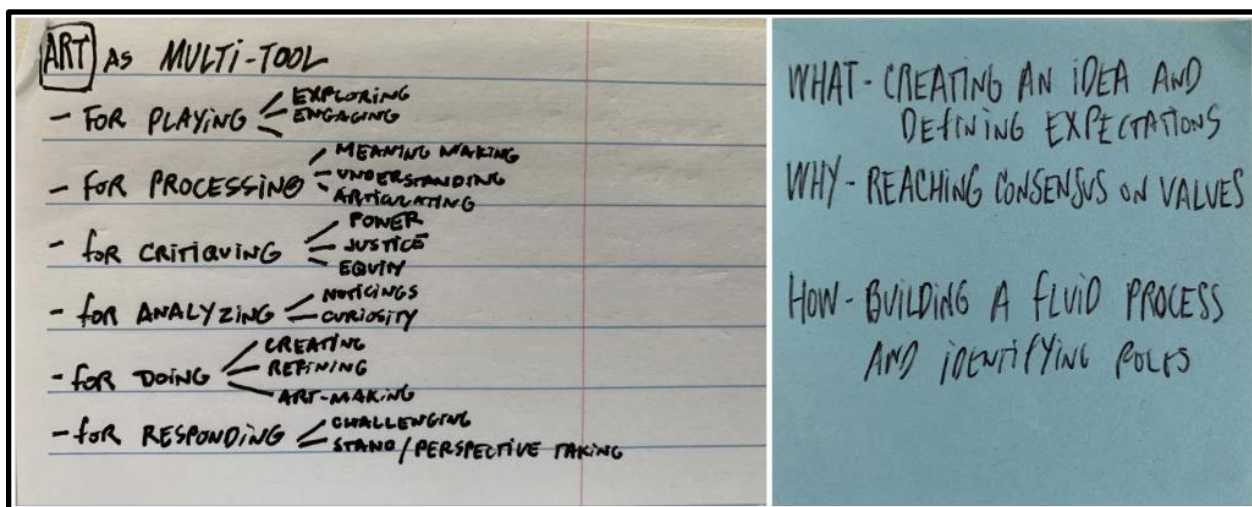 ART AS MULTI-TOOL
- FOR PLAYING
EXPLORING
ENGAGING
- FOR PROCESSING
MEANING MAKING
UNDERSTANDING
ARTICULATING
- for CRITIQUING
POWER
JUSTICE
EQUITY
- for ANALYZING
NOTICINGS
CURIOSITY
- for DOING
CREATING
REFINING
ART-MAKING
- for RESPONDING
CHALLENGING
STAND/PERSPECTIVE TAKING
WHAT - CREATING AN IDEA AND
DEFINING EXPECTATIONS
WHY - REACHING CONSENSUS ON VALUES
HOW - BUILDING A FLUID PROCESS
AND IDENTIFYING ROLES